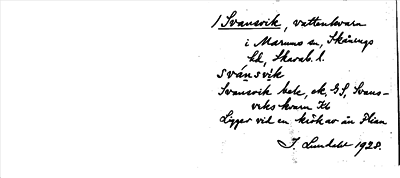 1 Svansvik, vattenkvarn
i Marums sn, Skånings
hd, Skarab. l.
svánsvik
Svansvik bebr., ek, GS, Svans-
viks kvarn Kb
Ligger vid en krök av ån Flian
J. Lundahl 1928.